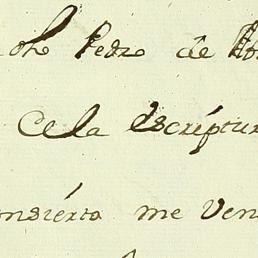 dho Pedro de
Cela Escriptur
onsierta me Ven